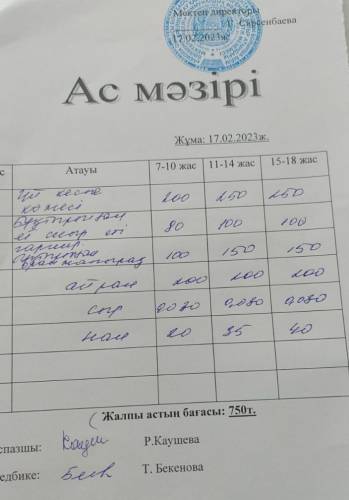 Мектеп директоры
Сәрсенбаева
17.02.2023ж
Ас мәзірі
Жұма: 17.02.2023ж.
с Атауы 7-10 жас 11-14 жас 15-18 жас
Үй кеспе
көжесі 200 250 250
80 100 100
гарнир
100 150 150
айран 200 200 200
сыр 0,030 0,030
нан 20 35 40
Жалпы астың бағасы: 750т.
спазшы: Р.Каушева
едбике: Т. Бекенова